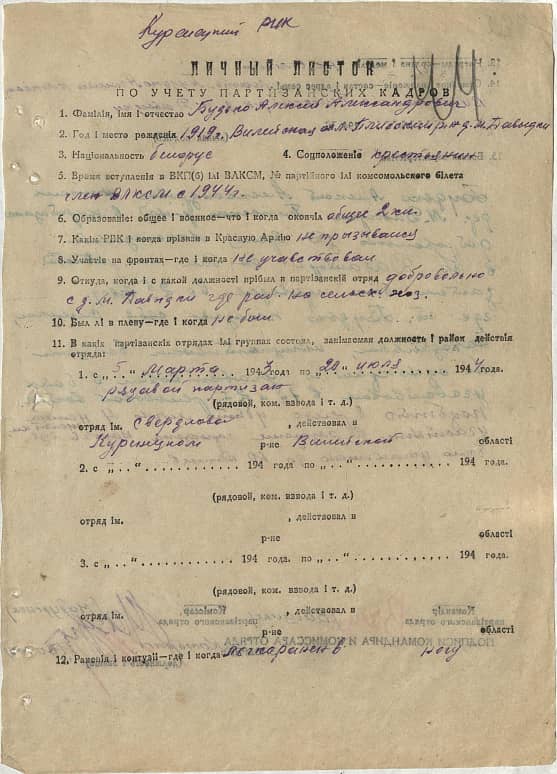 Куренецкий РИК
ЛИЧНЫЙ ЛИСТОК
ПО УЧЕТУ ПАРТИЗАНСКИХ КАДРОВ
1. Фамілія, імя і отчество Будько Алексей Александрович
2. Год і место рождения 1919г. Вилейская обл. р-н д. М. Павыдки
3. Національность белорус 4. Соцположеніе крестьянин
5. Время вступления в ВКП(б) ілі ВЛКСМ, № партійного ілі комсомольского білета
член ВЛКСМ с 1944г.
6. Образование: общее і военное—что і когда окончіл общее 2 кл.
7. Каким РВК і когда прізван в Красную Армію не призывался
8. Участіе на фронтах—где і когда не учавствовал
9. Откуда, когда і с какой должності прібыл в партізанскій отряд добровольно
с д. М. Павыдки где раб. на сельск. хоз.
10. Был лі в плену—где і когда не был
11. В какіх партізанскіх отрядах ілі группах состоял, занімаемая должность і район действія
отряда:
1. с „ 5 “ Марта 1943 г. по „ 20 “ июля 1944 года.
рядовой партизан
(рядовой, ком. взвода і т. д.)
отряд ім. Свердлова , действовал в
Куренецком р-не Вилейской області
2. с „ . . “ 194 года по „ . . “ 194 года.
(рядовой, ком. взвода і т. д.)
отряд ім. , действовал в
р-не області
3. с „ . . “ 194 года. по „ . . “ 194 года.
(рядовой, ком. взвода і т. д.)
отряд ім. , действовал в
р-не області
12. Раненія і контузіі—где і когда легко ранен в ногу